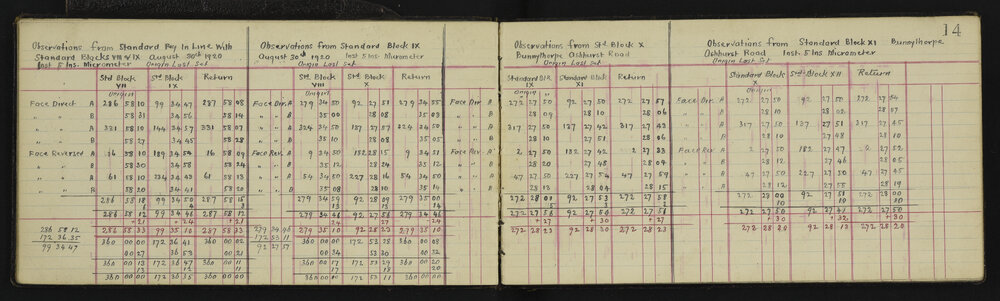 14
Observations from Standard Peg in Line With
Standard Blocks VIII & IX August 30th 1920
Inst 5 Ins. Micrometer Origin Last Set
Std Block VIII Std. Block IX Return
Origin
Face Direct A 286 58 10 99 34 47 287 58 08
" " B 58 31 34 56 58 14
" " A 321 58 10 144 34 57 331 58 07
" " B 58 27 34 45 58 28
Face Reversed A 16 58 10 189 34 54 16 58 09
" " B 58 30 34 58 58 24
" " A 61 58 10 234 34 43 61 58 13
" " B 58 20 34 41 58 20
286 58 18 99 34 50 287 58 15
286 58 12 99 34 46 287 58 12
+ 21 + 24 + 21
286 58 33 99 35 10 287 58 33
360 00 00 172 36 41 360 00 02
00 27 36 53 00 21
360 00 13 172 36 47 360 00 11
360 00 00 172 36 35 360 00 00
286 58 12
172 36 35
99 34 47
Observations from Standard Block IX
August 30th 1920 Inst 5 Ins Micrometer
Origin Last Set
Std. Block VIII Std. Block X Return
Origin
Face Dir. A 279 34 50 92 27 51 279 34 55
" " B 35 00 28 08 35 08
" " A 324 34 50 137 27 57 324 34 50
" " B 35 10 28 08 35 05
Face Rev. A 9 34 50 182 28 15 9 34 51
" " B 35 12 28 24 35 12
" " A 54 34 50 227 28 16 54 34 50
" " B 35 08 28 10 35 14
279 34 59 92 28 09 279 35 00
279 34 46 92 27 56 279 34 46
+ 24 + 27 + 24
279 35 10 92 28 23 279 35 10
360 00 00 172 53 28 360 00 08
00 34 53 30 00 32
360 00 17 172 53 29 360 00 20
360 00 00 172 53 11 360 00 00
279 34 46
172 53 11
92 27 57
Observations from Std. Block X
Bunnythorpe Ashhurst Road
Origin Last Set
Standard Blk IX Std. Block XI Return
Origin
Face Dir. A 272 27 50 92 27 50 272 27 57
" " B 28 09 28 10 28 06
" " A 317 27 50 137 27 42 317 27 43
" " B 28 10 28 08 28 06
Face Rev. A 2 27 50 182 27 42 2 27 33
" " B 28 20 27 48 28 04
" " A 47 27 50 227 27 54 47 27 59
" " B 28 13 28 04 28 15
272 27 56 92 27 56 272 27 56
272 28 23 92 28 23 272 28 23
Observations from Standard Block XI Bunnythorpe
Ashhurst Road Inst. 5 Ins Micrometer
Origin Last Set
Standard Block X Std. Block XII Return
Origin
Face Dir. A 272 27 50 92 27 50 272 27 54
" " B 28 10 28 02 28 07
" " A 317 27 50 137 27 51 317 27 45
" " B 28 10 27 48 28 10
Face Rev. A 2 27 50 182 27 47 2 27 52
" " B 28 12 27 46 28 05
" " A 47 27 50 227 27 50 47 27 45
" " B 28 12 27 55 28 19
272 28 00 92 27 51 272 28 00
272 27 50 92 27 41 272 27 50
+ 30 + 32 + 30
272 28 20 92 28 13 272 28 20